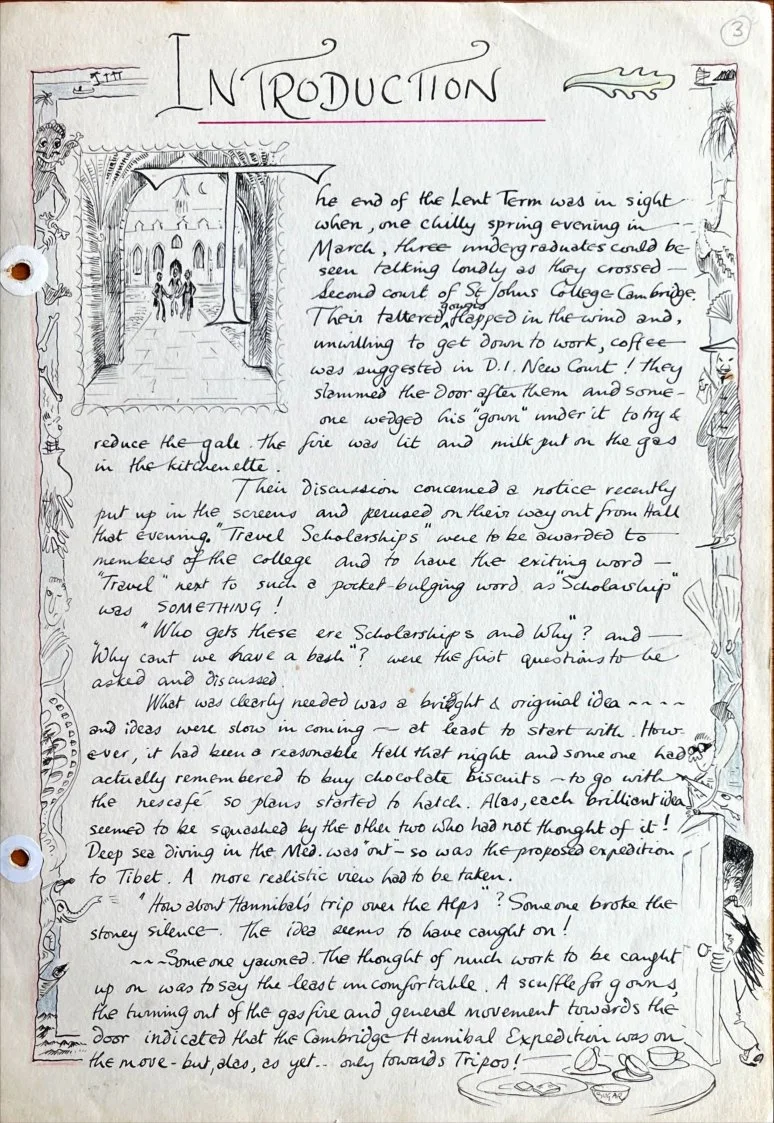 3
INTRODUCTION
The end of the Lent Term was in sight
when, one chilly spring evening in
March, three undergraduates could be
seen talking loudly as they crossed —
Second court of St Johns College Cambridge.
Their tattered gowns flapped in the wind and,
unwilling to get down to work, coffee
was suggested in D.1. New Court! They
slammed the door after them and some-
one wedged his "gown" under it to try &
reduce the gale. The fire was lit and milk put on the gas
in the kitchenette.
Their discussion concerned a notice recently
put up in the screens and perused on their way out from Hall
that evening. "Travel Scholarships" were to be awarded to
members of the college and to have the exiting word —
"Travel" next to such a pocket-bulging word as "Scholarship"
was SOMETHING!
"Who gets these ere Scholarships and Why"? and —
"Why cant we have a bash"? were the first questions to be
asked and discussed.
What was clearly needed was a bright & original idea ~~~~
and ideas were slow in coming — at least to start with. How-
ever, it had been a reasonable Hall that night and someone had
actually remembered to buy chocolate biscuits — to go with
the nescafé so plans started to hatch. Alas, each brilliant idea
seemed to be squashed by the other two who had not thought of it!
Deep sea diving in the Med. was "out" — so was the proposed expedition
to Tibet. A more realistic view had to be taken.
"How about Hannibal's trip over the Alps"? Someone broke the
stoney silence. The idea seems to have caught on!
~~~Someone yawned. The thought of much work to be caught
up on was to say the least uncomfortable. A scuffle for gowns,
the turning out of the gas fire and general movement towards the
door indicated that the Cambridge Hannibal Expedition was on
the move - but, alas, as yet... only towards Tripos!
SUGAR